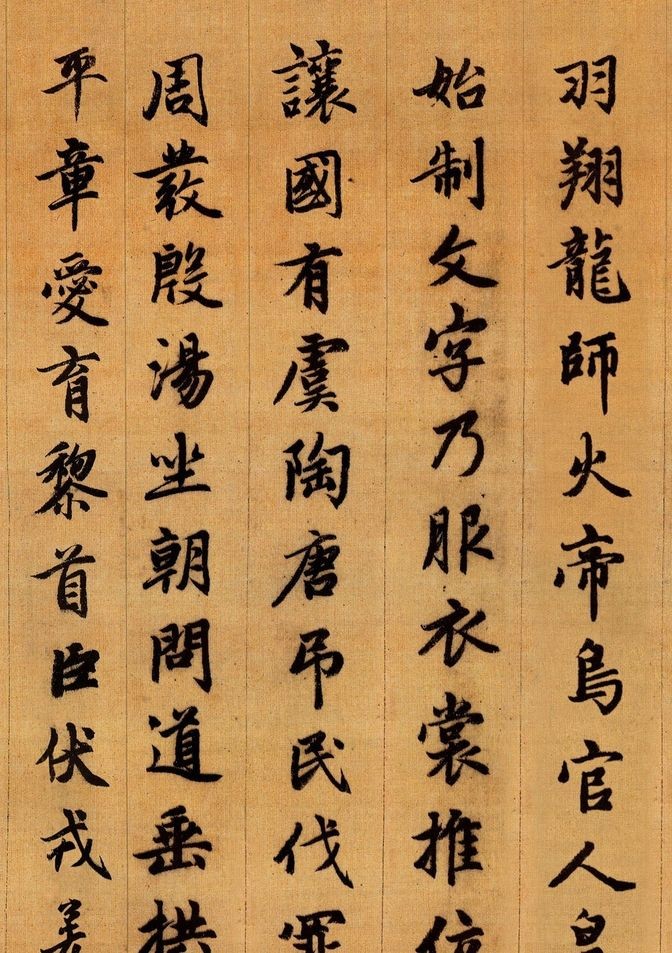 羽翔龍師火帝鳥官人皇
始制文字乃服衣裳推位
讓國有虞陶唐吊民伐罪
周發殷湯坐朝問道垂拱
平章愛育黎首臣伏戎羌